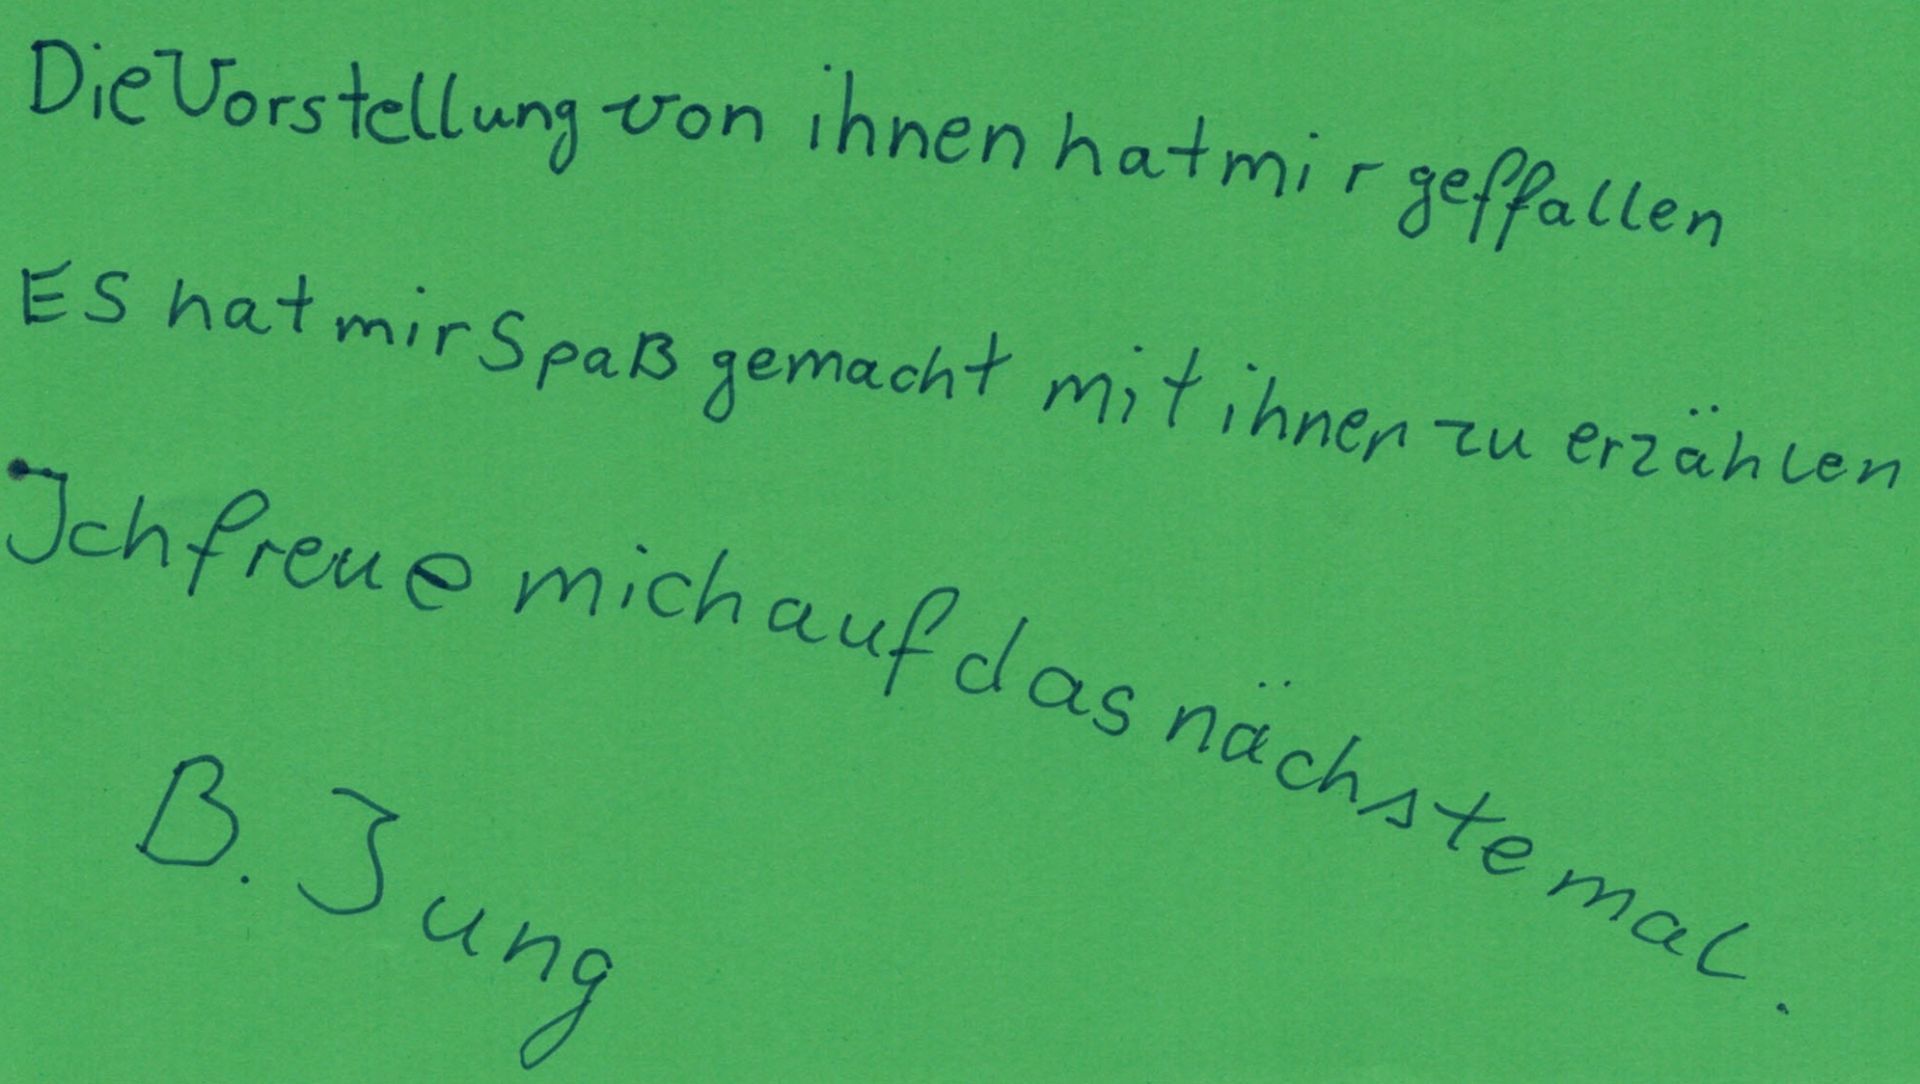 Die Vorstellung von ihnen hat mir geffallen
ES hat mir Spaß gemacht mit ihnen zu erzählen
Ich freue mich auf das nächste mal.
B. Jung